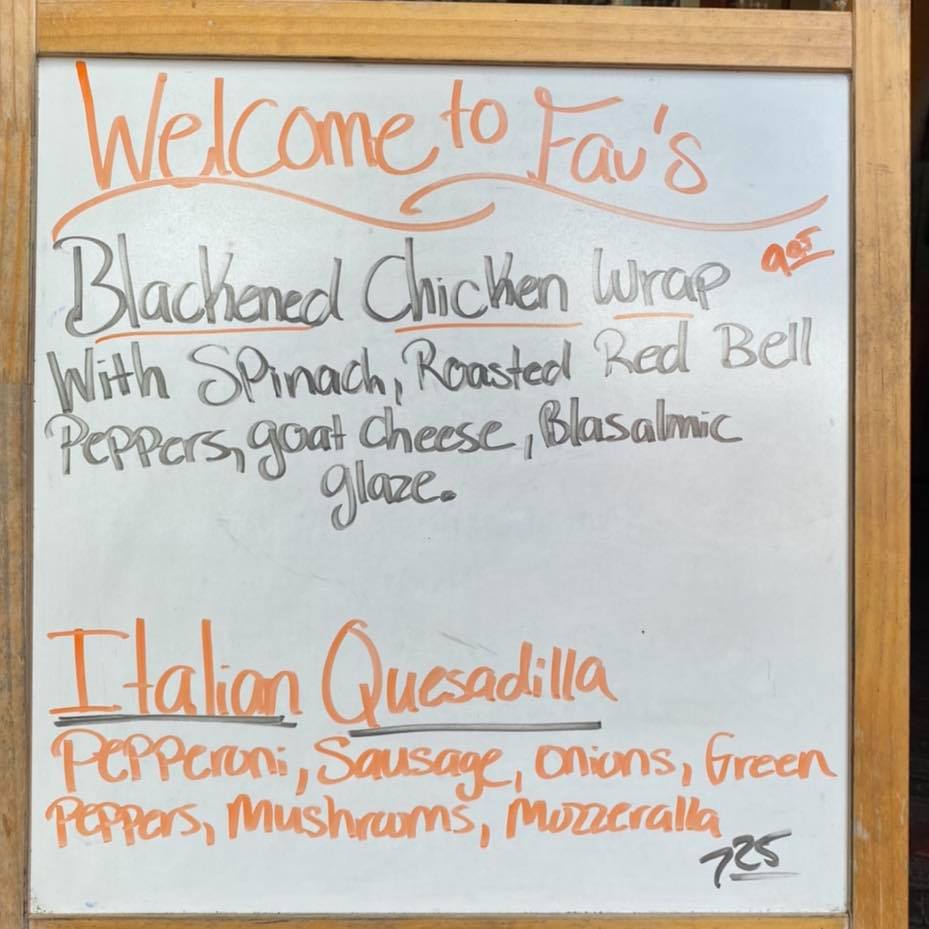 Welcome to Fav's
Blackened Chicken Wrap 9.05
With Spinach, Roasted Red Bell
Peppers, goat cheese, Blasalmic
glaze.
Italian Quesadilla
Pepperoni, Sausage, onions, Green
Peppers, Mushrooms, Mozzeralla
7.25